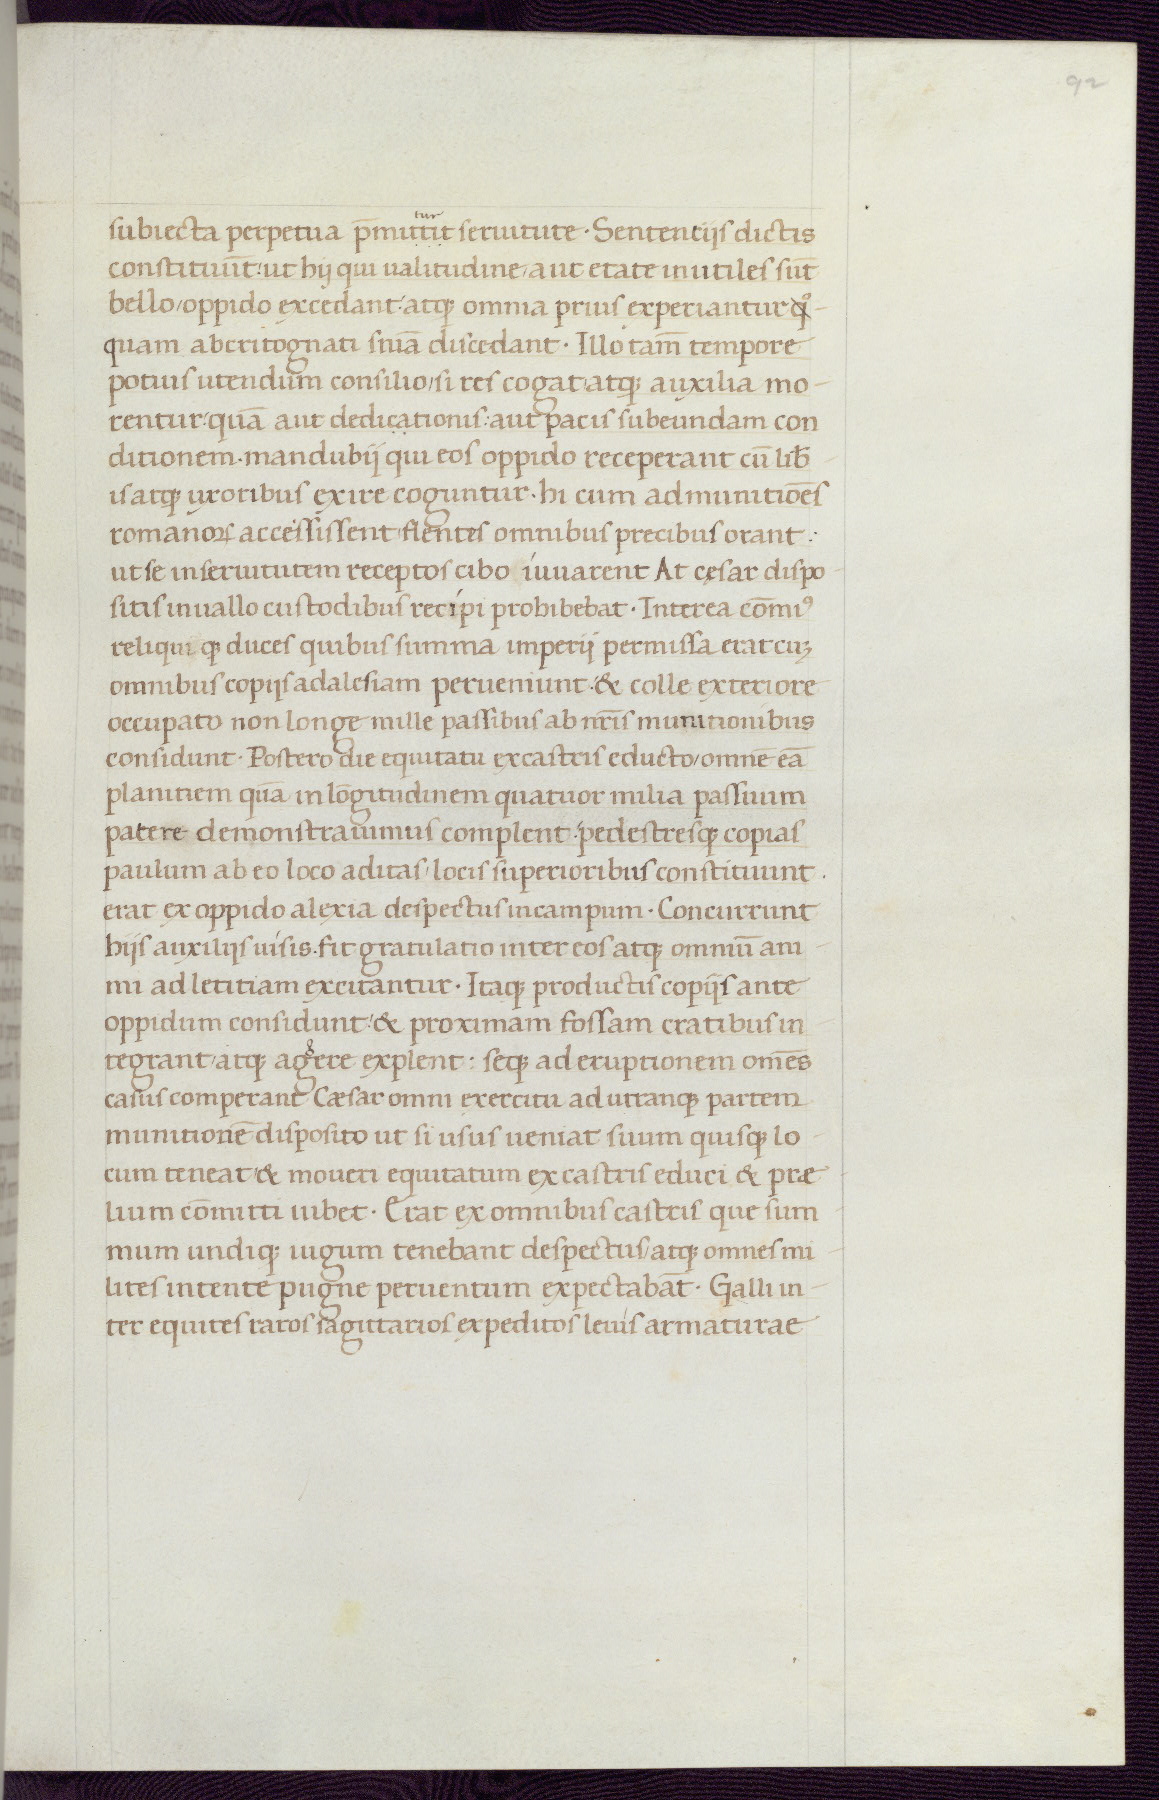 92
tur
subiecta perpetua p̄mittit seruitute · Sententijs dictis
constituūt : ut hij qui ualitudine / aut etate inutiles sūt
bello / oppido excedant : atq; omnia prius experiantur q̊ -
quam abcritognati sniā discedant · Illo tam̄ tempore
potius utendum consilio / si res cogat / atq; auxilia mo -
rentur : quā aut dedicationis : aut pacis subeundam con
ditionem · mandubij qui eos oppido receperant cū lib̄
is atq; uxoribus exire coguntur · hi cum ad munitiōēs
romanoꝝ accessissent / flentes omnibus precibus orant :
ut se in seruitutem receptos cibo iuuarent At cęsar dispo -
sitis in uallo custodibus recipi prohibebat · Interea cōmiꝰ
reliqui q; duces quibus summa imperij permissa erat cuʒ
omnibus copijs ad alesiam perueniunt : & colle exteriore
occupato non longe mille passibus ab nr̄is munitionibus
considunt · Postero die equitatu ex castris educto / omnē eā
planitiem quā in lōgitudinem quatuor milia passuum
patere demonstrauimus complent : pedestresq; copias
paulum ab eo loco aditas / locis superioribus constituunt ·
erat ex oppido alexia despectus in campum · Concurrunt
hijs auxilijs uisis · fit gratulatio inter eos atq; omniū ani -
mi ad letitiam excitantur · Itaq; productis copijs ante
oppidum considunt : & proximam fossam cratibus in -
tegrant / atq; aggere explent : seq; ad eruptionem om̄es
casus comperant Cæsar omni exercitu ad utranq; partem
munitionē disposito ut si usus ueniat suum quisq; lo -
cum teneat / & moueri equitatum ex castris educi & præ -
lium cōmitti iubet · Erat ex omnibus castris que sum -
mum undiq; iugum tenebant despectus / atq; omnes mi -
lites intente pugne peruentum expectabāt · Galli in -
ter equites raros sagittarios expeditos leuis armaturae